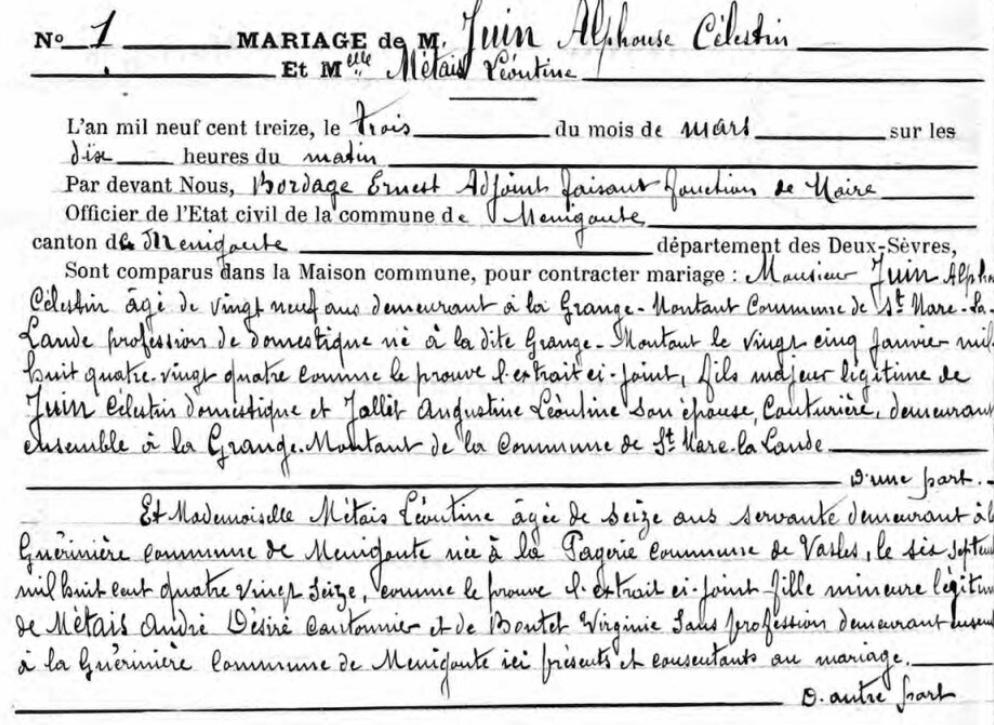 N° 1 MARIAGE de M. Juin Alphonse Célestin
Et Melle Métais Léontine
L'an mil neuf cent treize, le trois du mois de mars sur les
dix heures du matin
Par devant Nous, Bordage Ernest Adjoint faisant fonction de Maire
Officier de l'Etat civil de la commune de Menigoute
canton de Menigoute département des Deux-Sèvres,
Sont comparus dans la Maison commune, pour contracter mariage : Monsieur Juin Alpho
Célestin âgé de vingt neuf ans demeurant à la Grange-Montant Commune de St Marc-la-
Lande profession de domestique né à la dite Grange-Montant le vingt cinq Janvier mil
huit quatre-vingt quatre comme le prouve l'extrait ci-joint, fils majeur légitime de
Juin Célestin domestique et Jallet Augustine Léontine son épouse, Couturière, demeurant
ensemble à la Grange-Montant de la Commune de St Marc-la-Lande
D'une part.
Et Mademoiselle Métais Léontine âgée de seize ans servante demeurant à la
Guérinière commune de Menigoute née à la Pagerie Commune de Vasles, le six Septem
mil huit cent quatre vingt seize, comme le prouve l'extrait ci-joint fille mineure légitim
de Métais André Désiré Cantonnier et de Bontet Virginie sans profession demeurant ensem
à la Guérinière Commune de Menigoute ici présents et consentants au mariage.
D'autre part